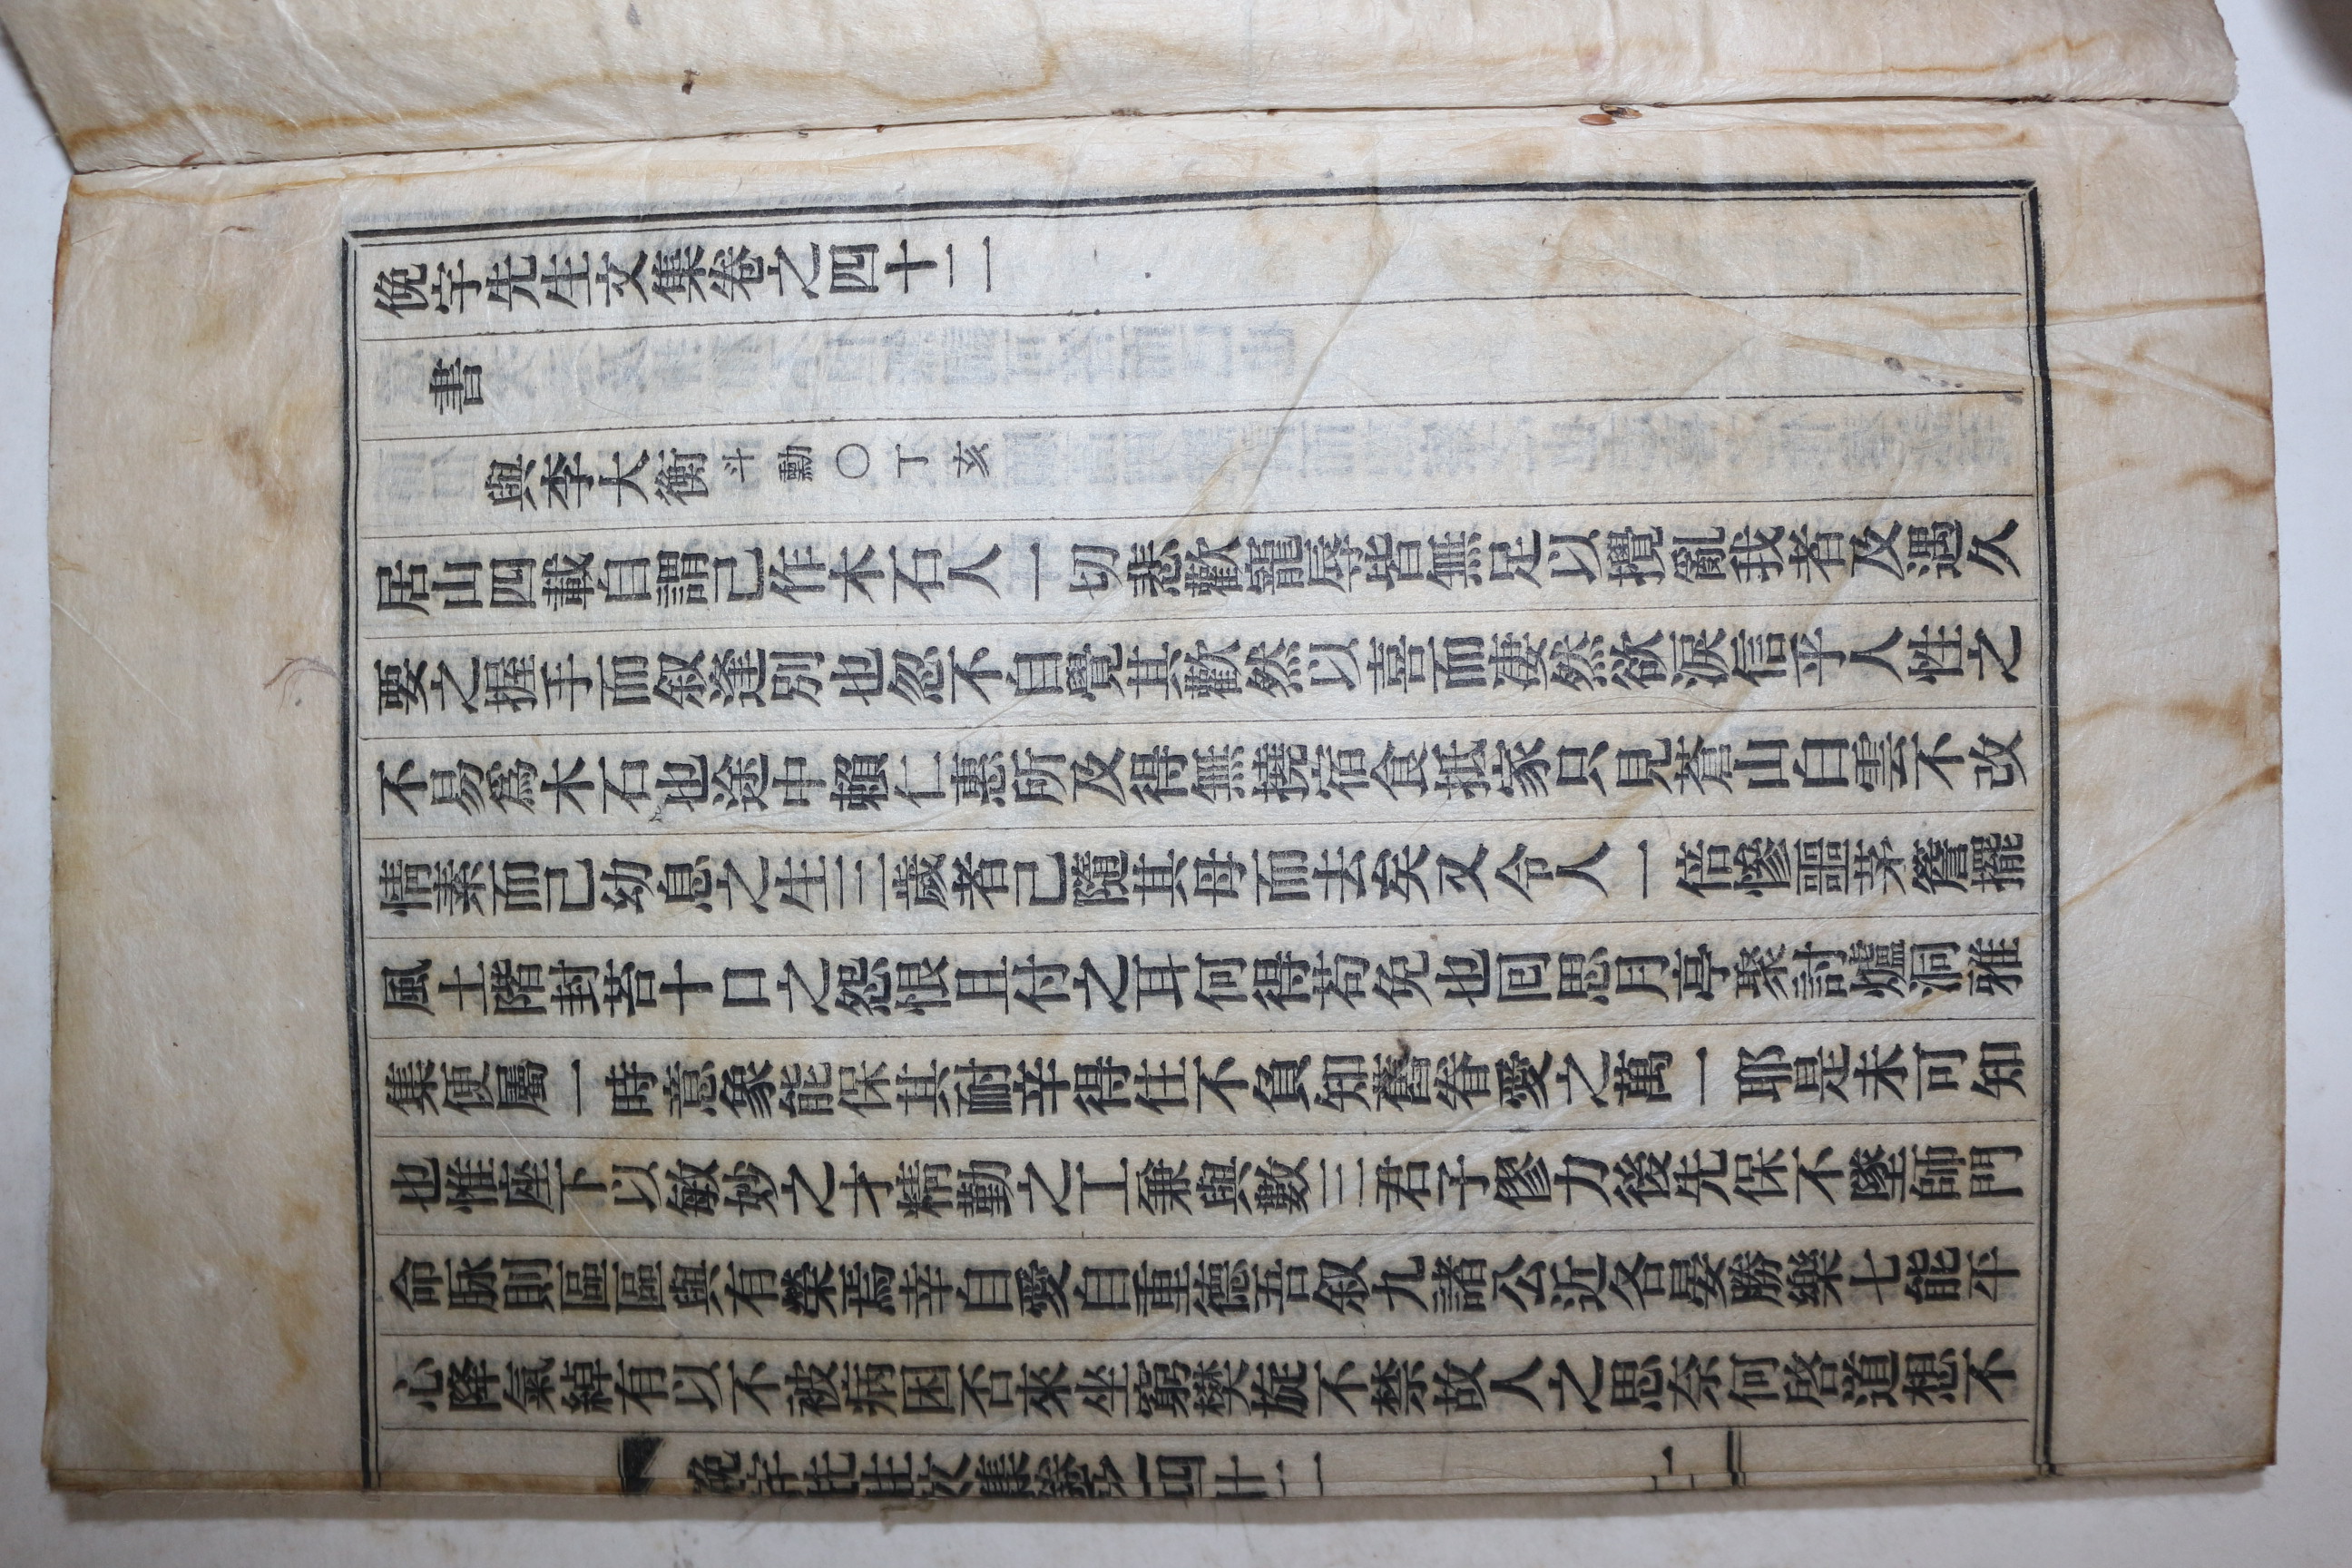 俛宇先生文集卷之四十二
書
與李大衡斗勳○丁亥
居山四載自謂己作木石人一切悲歡寵辱皆無足以攪亂我者及遇久
要之握手而叙逢別也忽不自覺其歡然以喜而凄然欲淚信乎人性之
不易爲木石也途中賴仁惠所及得無撓宿食抵家只見蒼山白雲不改
情素而己幼息之生三歲者己隨其母而去矣又令人一倍慘噩茅簷擺
風土階封苔十口之怨恨且付之耳何得苟免也回思月亭聚討爐洞雅
集便屬一時意象能保其耐辛得住不負知舊眷愛之萬一耶是未可知
也惟座下以敏妙之才精勤之工兼與數三君子僇力後先保不墜師門
命脉則區區與有榮焉幸自愛自重德吾叙九諸公近各晏勝樂七能平
心降氣綽有以不被病困否來坐窮樊旋不禁故人之思奈何啓道想不
俛宇先生文集卷之四十二
一